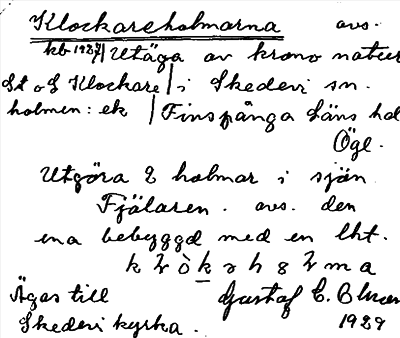 Klockareholmarna avs.
kb 1927 / Utäga av krono natur
St o L Klockare / i Skedevi sn.
holmen: ek / Finspånga läns hd
Ögl.
Utgöra 2 holmar i sjön
Fjälaren. avs. den
ena bebyggd med en lht.
Ägas till
Skedevi kyrka.
Gustaf C.
1929